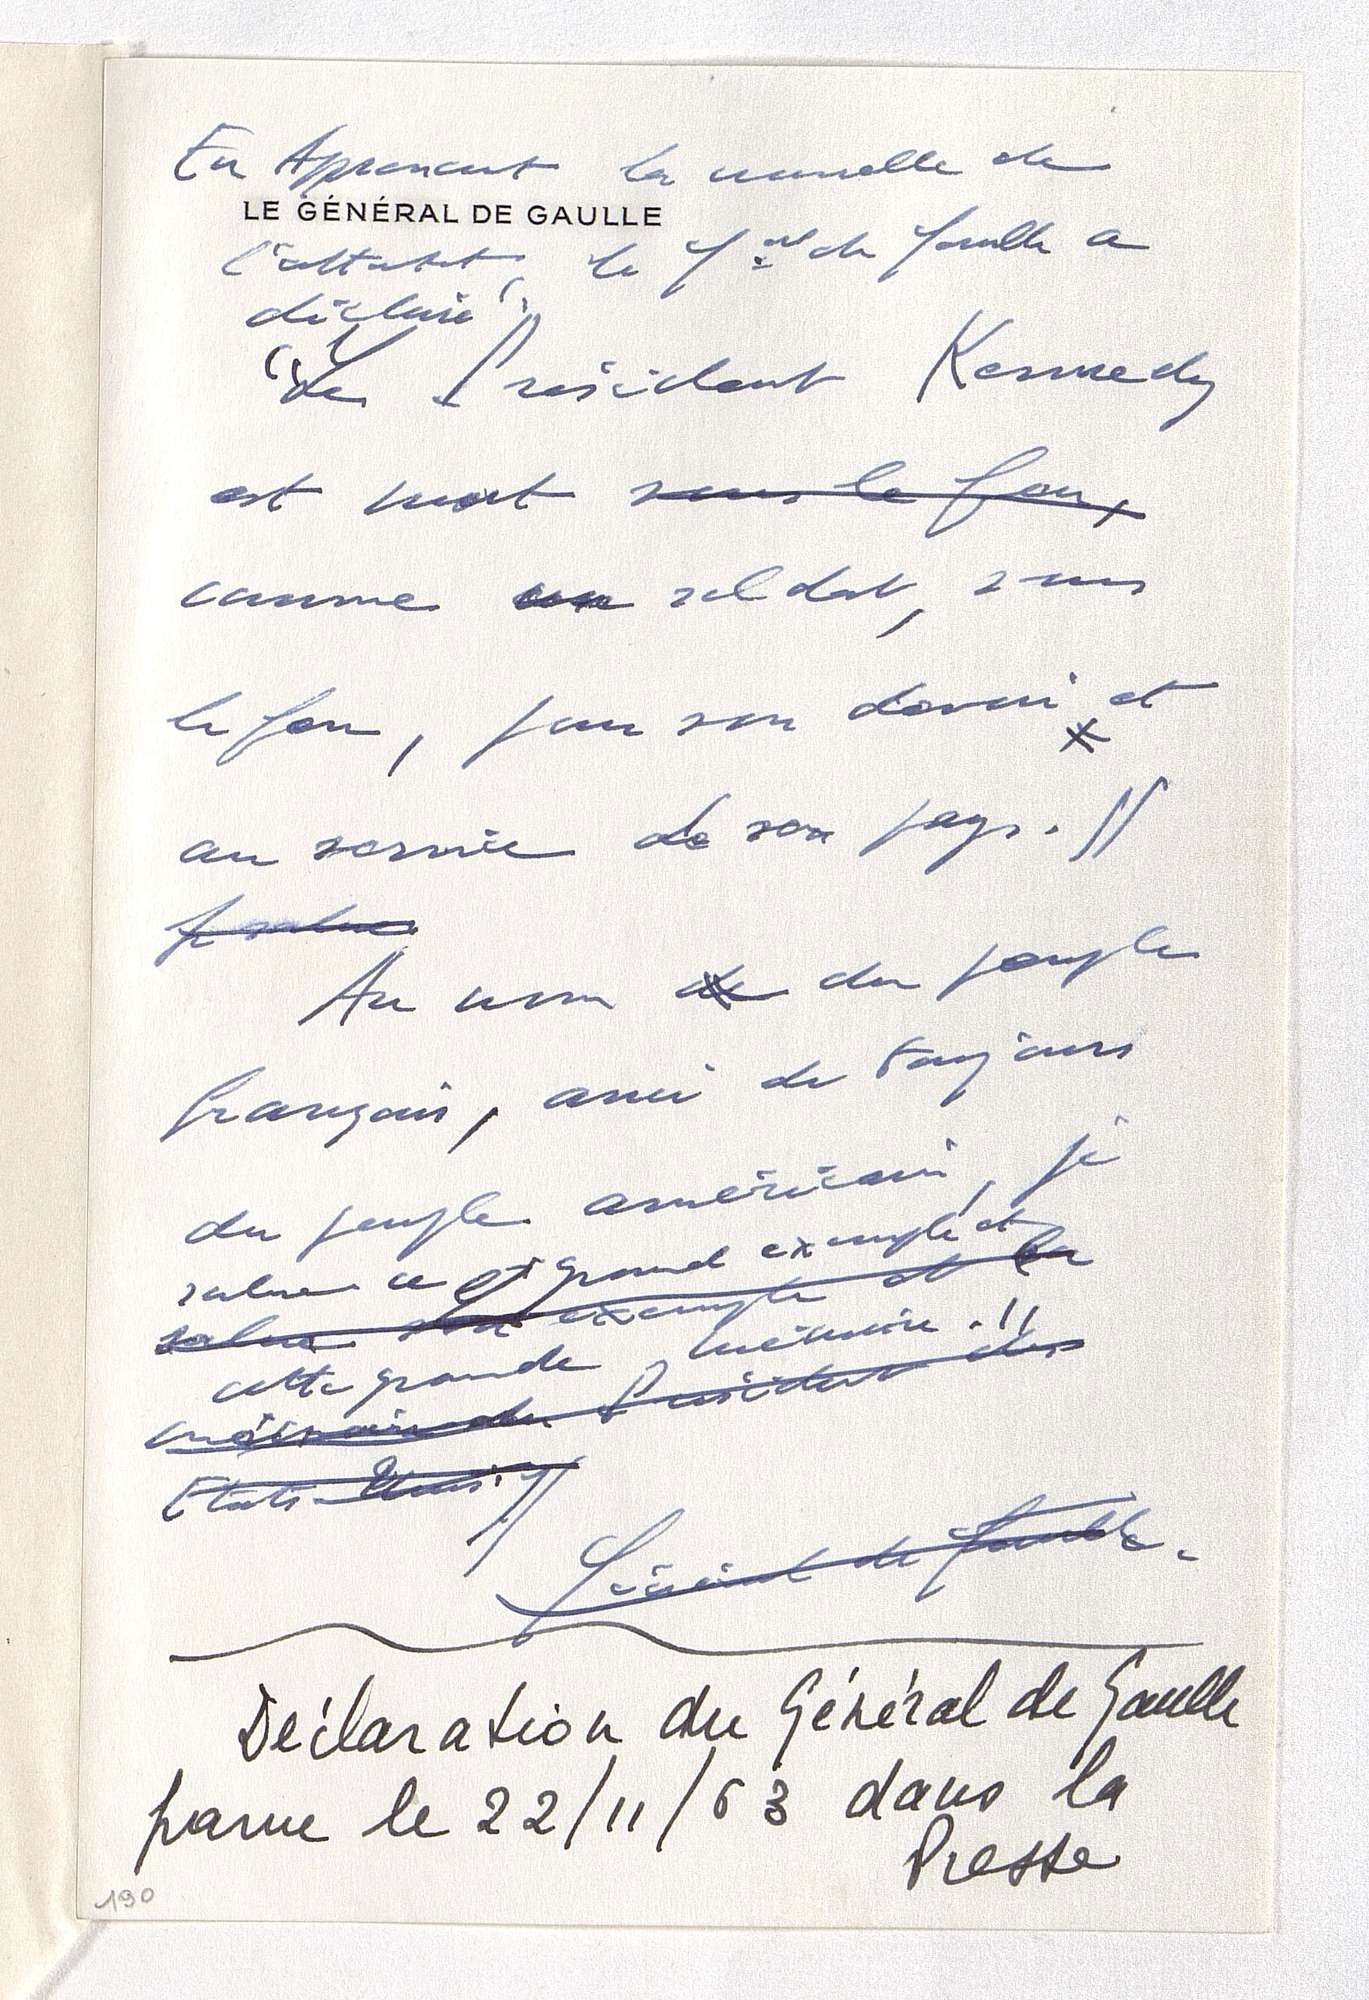 En Apprenant la nouvelle de
LE GÉNÉRAL DE GAULLE
l'attentat, le Gal de Gaulle a
déclaré :
"Le Président Kennedy
est mort sous le feu,
comme un soldat, sous
le feu, pour son devoir et
au service de son pays. //
Je salue
Au nom de du peuple
français, ami de toujours
du peuple américain, je
salue ce grand exemple et
salue son exemple et la
cette grande mémoire."
mémoire du Président des
Etats-Unis. //
Général de Gaulle.
Déclaration du Général de Gaulle
parue le 22/11/63 dans la
Presse
190